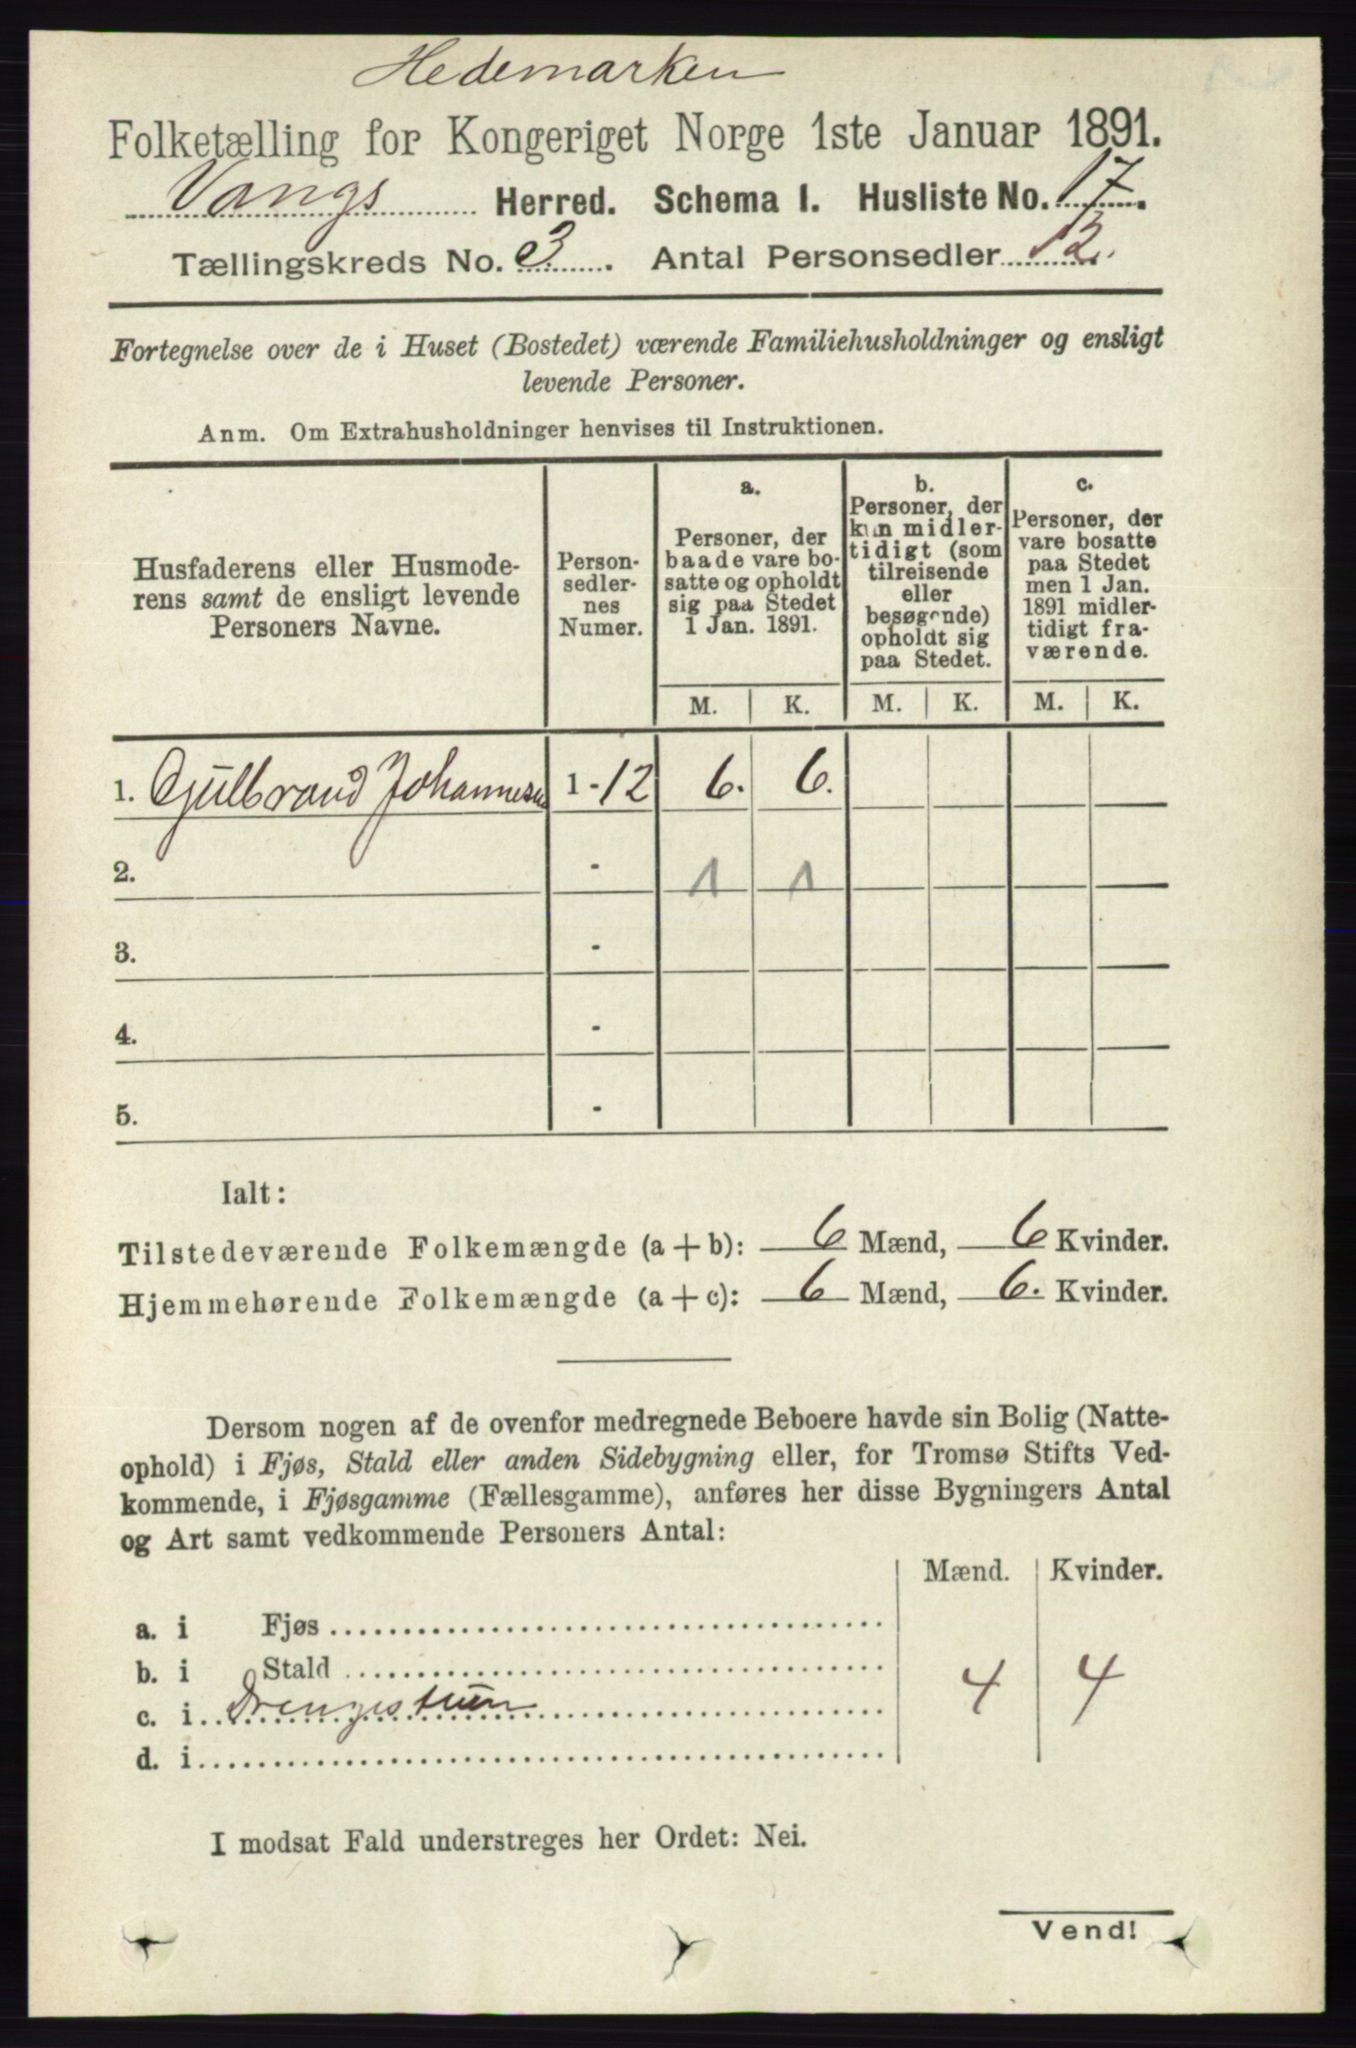 Hedemarken
Folketælling for Kongeriget Norge 1ste Januar 1891.
Vangs Herred. Schema 1. Husliste No. 17.
Tællingskreds No. 3. Antal Personsedler 12.
Fortegnelse over de i Huset (Bostedet) værende Familiehusholdninger og ensligt
levende Personer.
Anm. Om Extrahusholdninger henvises til Instruktionen.
Husfaderens eller Husmode-
rens samt de ensligt levende
Personers Navne.
Person-
sedler-
nes
Numer.
a.
Personer, der
baade vare bo-
satte og opholdt
sig paa Stedet
1 Jan. 1891.
b.
Personer, der
kun midler-
tidigt (som
tilreisende
eller
besøgende)
opholdt sig
paa Stedet.
c.
Personer, der
vare bosatte
paa Stedet
men 1 Jan.
1891 midler-
tidigt fra-
værende.
M. K. M. K. M. K.
1. Gulbrand Johannesen 1-12 6. 6.
2. - 1 1
3. -
4. -
5. -
Ialt:
Tilstedeværende Folkemængde (a + b): 6 Mænd, 6 Kvinder.
Hjemmehørende Folkemængde (a + c): 6 Mænd, 6. Kvinder.
Dersom nogen af de ovenfor medregnede Beboere havde sin Bolig (Natte-
ophold) i Fjøs, Stald eller anden Sidebygning eller, for Tromsø Stifts Ved-
kommende, i Fjøsgamme (Fællesgamme), anføres her disse Bygningers Antal
og Art samt vedkommende Personers Antal:
Mænd. Kvinder.
a. i Fjøs
b. i Stald
c. i Drengestuen 4 4
d. i
I modsat Fald understreges her Ordet: Nei.
Vend!